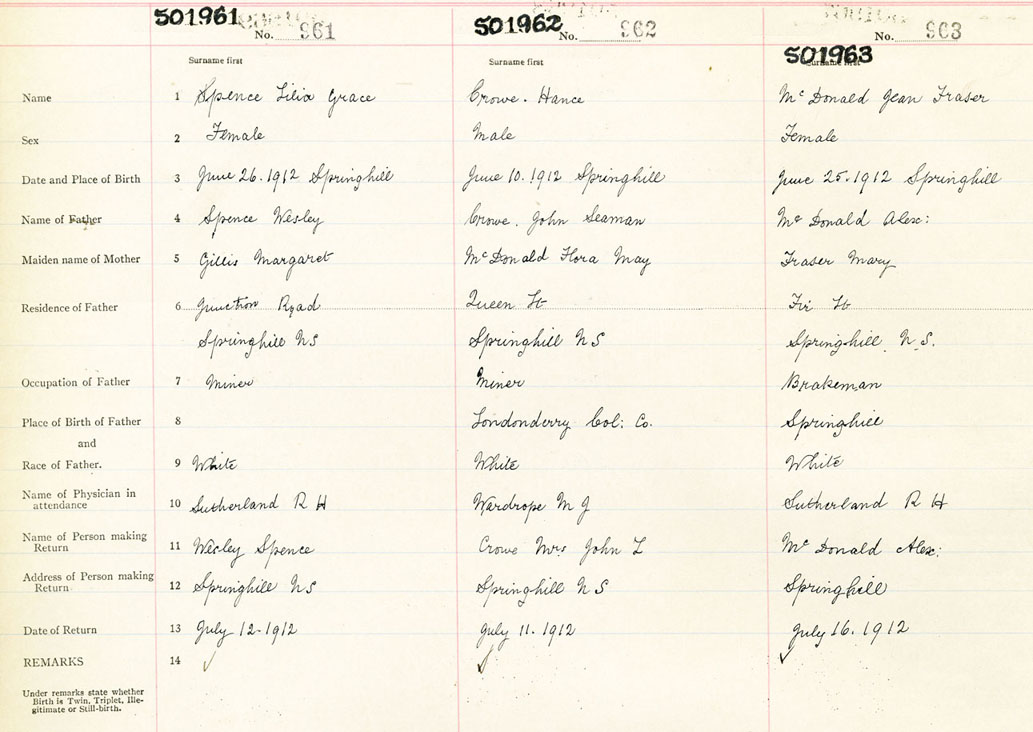 501961 No. 961 501962 No. 962 No. 963
Surname first Surname first 501963 Surname first
Name 1 Spence Lilia Grace Crowe. Hance McDonald Jean Fraser
Sex 2 Female Male Female
Date and Place of Birth 3 June 26. 1912 Springhill June 10. 1912 Springhill June 25. 1912 Springhill
Name of Father 4 Spence Wesley Crowe. John Seaman Mc Donald Alex:
Maiden name of Mother 5 Gillis Margaret McDonald Flora May Fraser Mary
Residence of Father 6 Junction Road Queen St Fir St
Springhill NS Springhill NS Springhill N.S.
Occupation of Father 7 Miner Miner Brakeman
Place of Birth of Father 8 Londonderry Col: Co. Springhill
and
Race of Father. 9 White White White
Name of Physician in
attendance 10 Sutherland R H Wardrope M J Sutherland R H
Name of Person making
Return 11 Wesley Spence Crowe Mrs John L Mc Donald Alex:
Address of Person making
Return 12 Springhill NS Springhill NS Springhill
Date of Return 13 July 12-1912 July 11. 1912 July 16. 1912
REMARKS 14 ✓ ✓ ✓
Under remarks state whether
Birth is Twin, Triplet, Ille-
gitimate or Still-birth.